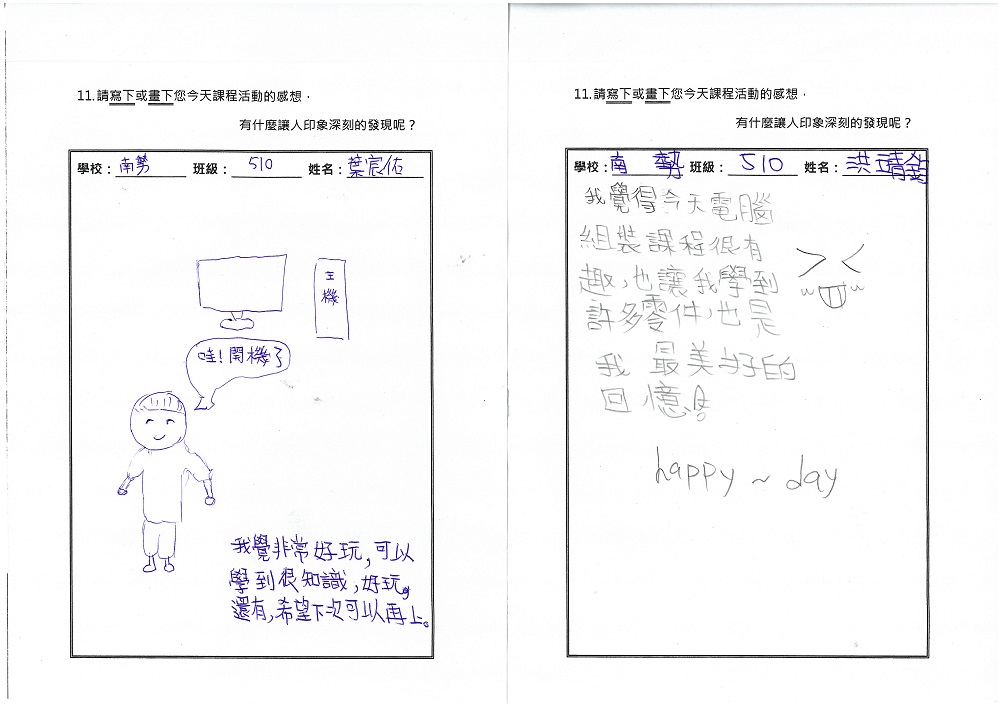 11.請寫下或畫下您今天課程活動的感想，
有什麼讓人印象深刻的發現呢？
學校：南勢 班級：510 姓名：葉宸佑
主機
哇!開機了
我覺非常好玩,可以
學到很知識,好玩。
還有,希望下次可以再上。
11.請寫下或畫下您今天課程活動的感想，
有什麼讓人印象深刻的發現呢？
學校：南勢 班級：510 姓名：洪靖
我覺得今天電腦
組裝課程很有
趣,也讓我學到
許多零件,也是
我最美好的
回憶。
happy ~ day